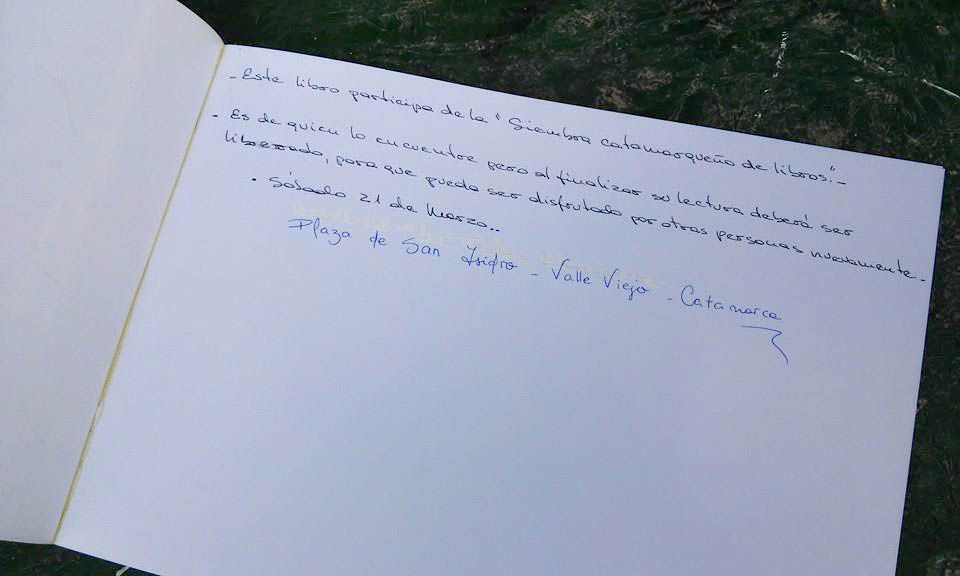 - Este libro participa de la "Siembra catamarqueña de libros".-
. Es de quien lo encuentre pero al finalizar su lectura deberá ser
liberado, para que pueda ser disfrutado por otras personas nuevamente.
. Sábado 21 de Marzo..
Plaza de San Isidro - Valle Viejo - Catamarca